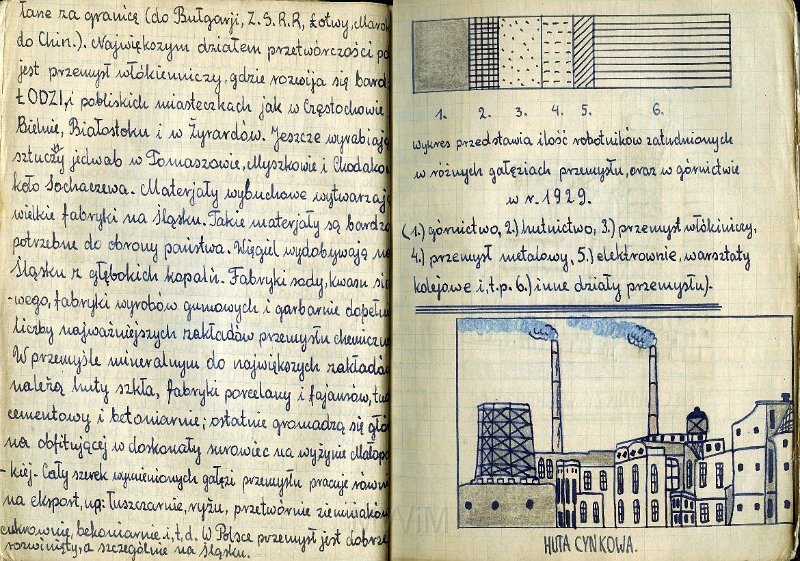 łane za granicę (do Bułgarji, Z.S.R.R, Łotwy, Marok
do Chin.). Największym działem przetwórczości po
jest przemysł włókienniczy, gdzie rozwija się bard
ŁODZI, i pobliskich miasteczkach jak w Częstochowie
Bielnie, Białostoku i w Żyrardów. Jeszcze wyrabiają
sztuczy jedwab w Tomaszowie, Myszkowie i Chodako
koło Sochaczewa. Materjały wybuchowe wytwarzają
wielkie fabryki na Śląsku. Takie materjały są bardzo
potrzebne do obrony państwa. Węgiel wydobywają na
Śląsku z głębokich kopalń. Fabryki sody, kwasu sia
-wego, fabryki wyrobów gumowych i garbarnie dopełn
liczby najważniejszych zakładów przemysłu chemiczn
W przemyśle mineralnym do największych zakładów
należą huty szkła, fabryki porcelany i fajansów,
cementowy i betoniarnie; ostatnie gromadzą się głó
na obfitującej w doskonały surowiec na wyżynie Małopo
-kiej. Cały szerek wymienionych gałęzi przemysłu pracuje równi
na eksport, np: Łuszczarnie, ryżu, przetwórnie ziemniaków
cukrownie, bekoniarnie. i, t, d. W Polsce przemysł jest dobrze
rozwinięty, a szczególnie na Śląsku.
1. 2. 3. 4. 5. 6.
Wykres przedstawia ilość robotników zatudnionych
w różnych gałęziach przemysłu, oraz w górnictwie
w r. 1929.
(1.) górnictwo, 2.) hutnictwo, 3.) przemysł włókiniczy,
4.) przemysł metalowy, 5.) elektrownie, warsztaty
kolejowe i, t.p. 6.) inne działy przemysłu).
HUTA CYNKOWA.
MWiM